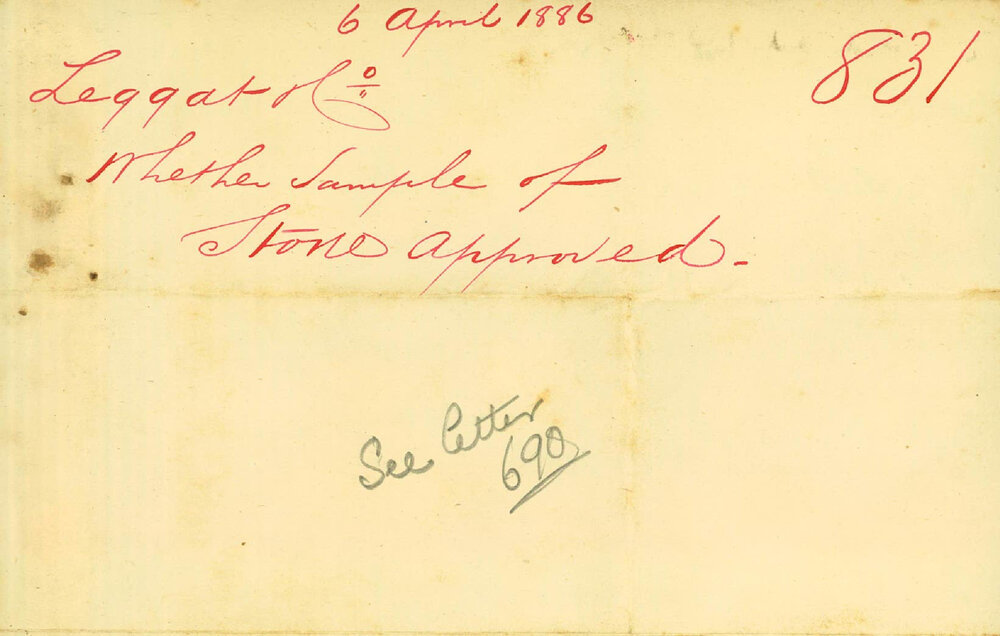 6 April 1886
831
Leggat & Co
Whether Sample of
Stone Approved.-
See letter
690